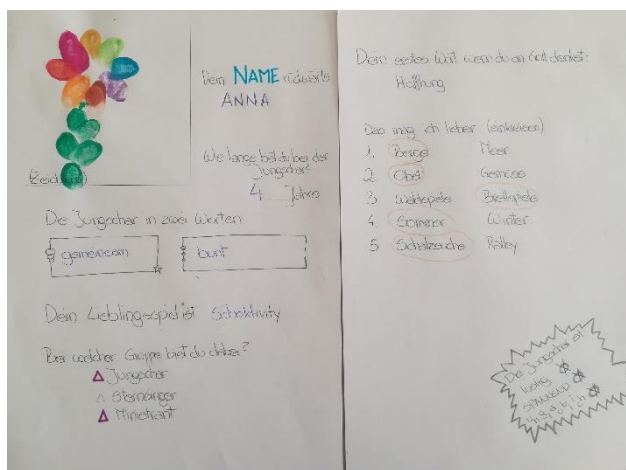 Dein NAME rückwärts
ANNA
Wie lange bist du bei der
Jungschar?
4 Jahren
Die Jungschar in zwei Worten
gemeinsam
bunt
Dein Lieblingsspiel ist Schoktivity
Bei welcher Gruppe bist du dabei?
Jungschar
Sternsinger
Ministrant
Dein erstes Wort wenn du an Gott denkst:
Hoffnung
Das mag ich lieber (einkreisen)
1. Berge Meer
2. Obst Gemüse
3. Waldspiele Brettspiele
4. Sommer Winter
5. Schatzsuche Ralley
Die Jungschar ist
lustig